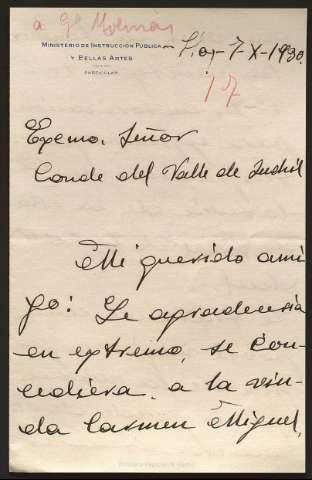 a Gl Molinas
MINISTERIO DE INSTRUCCIÓN PÚBLICA
Y BELLAS ARTES
PARTICULAR
Hoy-7-X-1930.
17
Excmo. Señor
Conde del Valle de Suchil
Mi querido ami
go: Le agradeceria
en extremo, se con-
cediera, a la viu-
da Carmen Miguel,